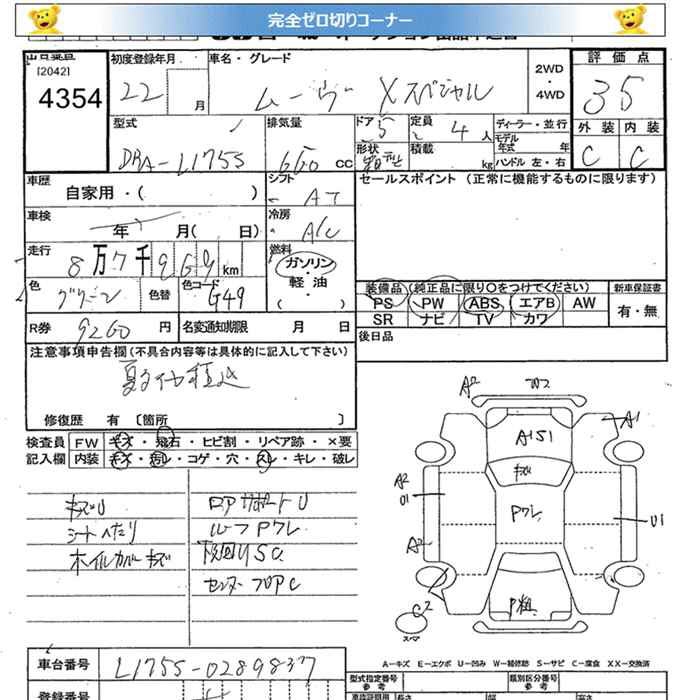 完全ゼロ切りコーナー
出品番号 初度登録年月 車名・グレード 2WD ・ 4WD 評価点
[2042]
4354 22 月 ムーヴ Xスペシャル 35
型式 排気量 ドア 5 定員 4 人 ディーラー・並行 外装 内装
モデル年式 年
DBA-L175S 660 cc 形状 積載 kg ハンドル 左・右 C C
車歴 シフト セールスポイント (正常に機能するものに限ります)
自家用・( ) AT
車検 冷房
年 月( 日) A/C
走行 燃料
8万7千969km ガソリン
色 色替 色コード ・軽油 装備品 (純正品に限り○をつけてください) 新車保証書
グリーン G49 ( ) PS PW ABS エアB AW 有・無
SR ナビ TV カワ
R券 9260円 名変通知期限 月 日 後日品
注意事項申告欄(不具合内容等は具体的に記入して下さい)
修復歴 有 〔箇所 〕
検査員 FW キズ・飛石・ヒビ割・リペア跡・×要
記入欄 内装 キズ・汚レ・コゲ・穴・スレ・キレ・破レ
A2 W2 A1
A151
キズ
A2
U1
Pワレ
U1
A2
C2
スペア
キズU
シートヘタリ
ホイルカバーキズ
ロアサポートU
ルーフPワレ
下回りSC
センターフロアC
A-キズ E-エクボ U-凹み W-補修跡 S-サビ C-腐食 XX-交換済
車台番号 L175S-0289837
型式指定番号 参考 類別区分番号 参考
登録番号